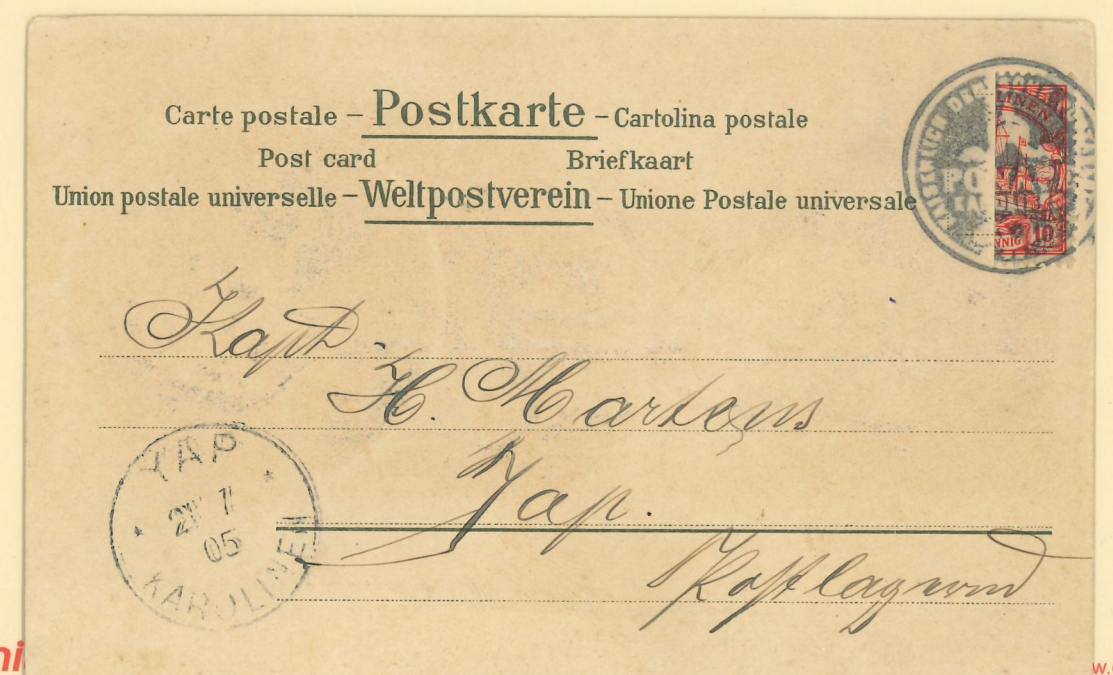 Carte postale – Postkarte – Cartolina postale
Post card Briefkaart
Union postale universelle – Weltpostverein – Unione Postale universale
LINEN
10
NNIG 10
Kapt.
H. Martens
Yap.
Postlagernd
YAP
7
05
KAROLINEN
ni
w.